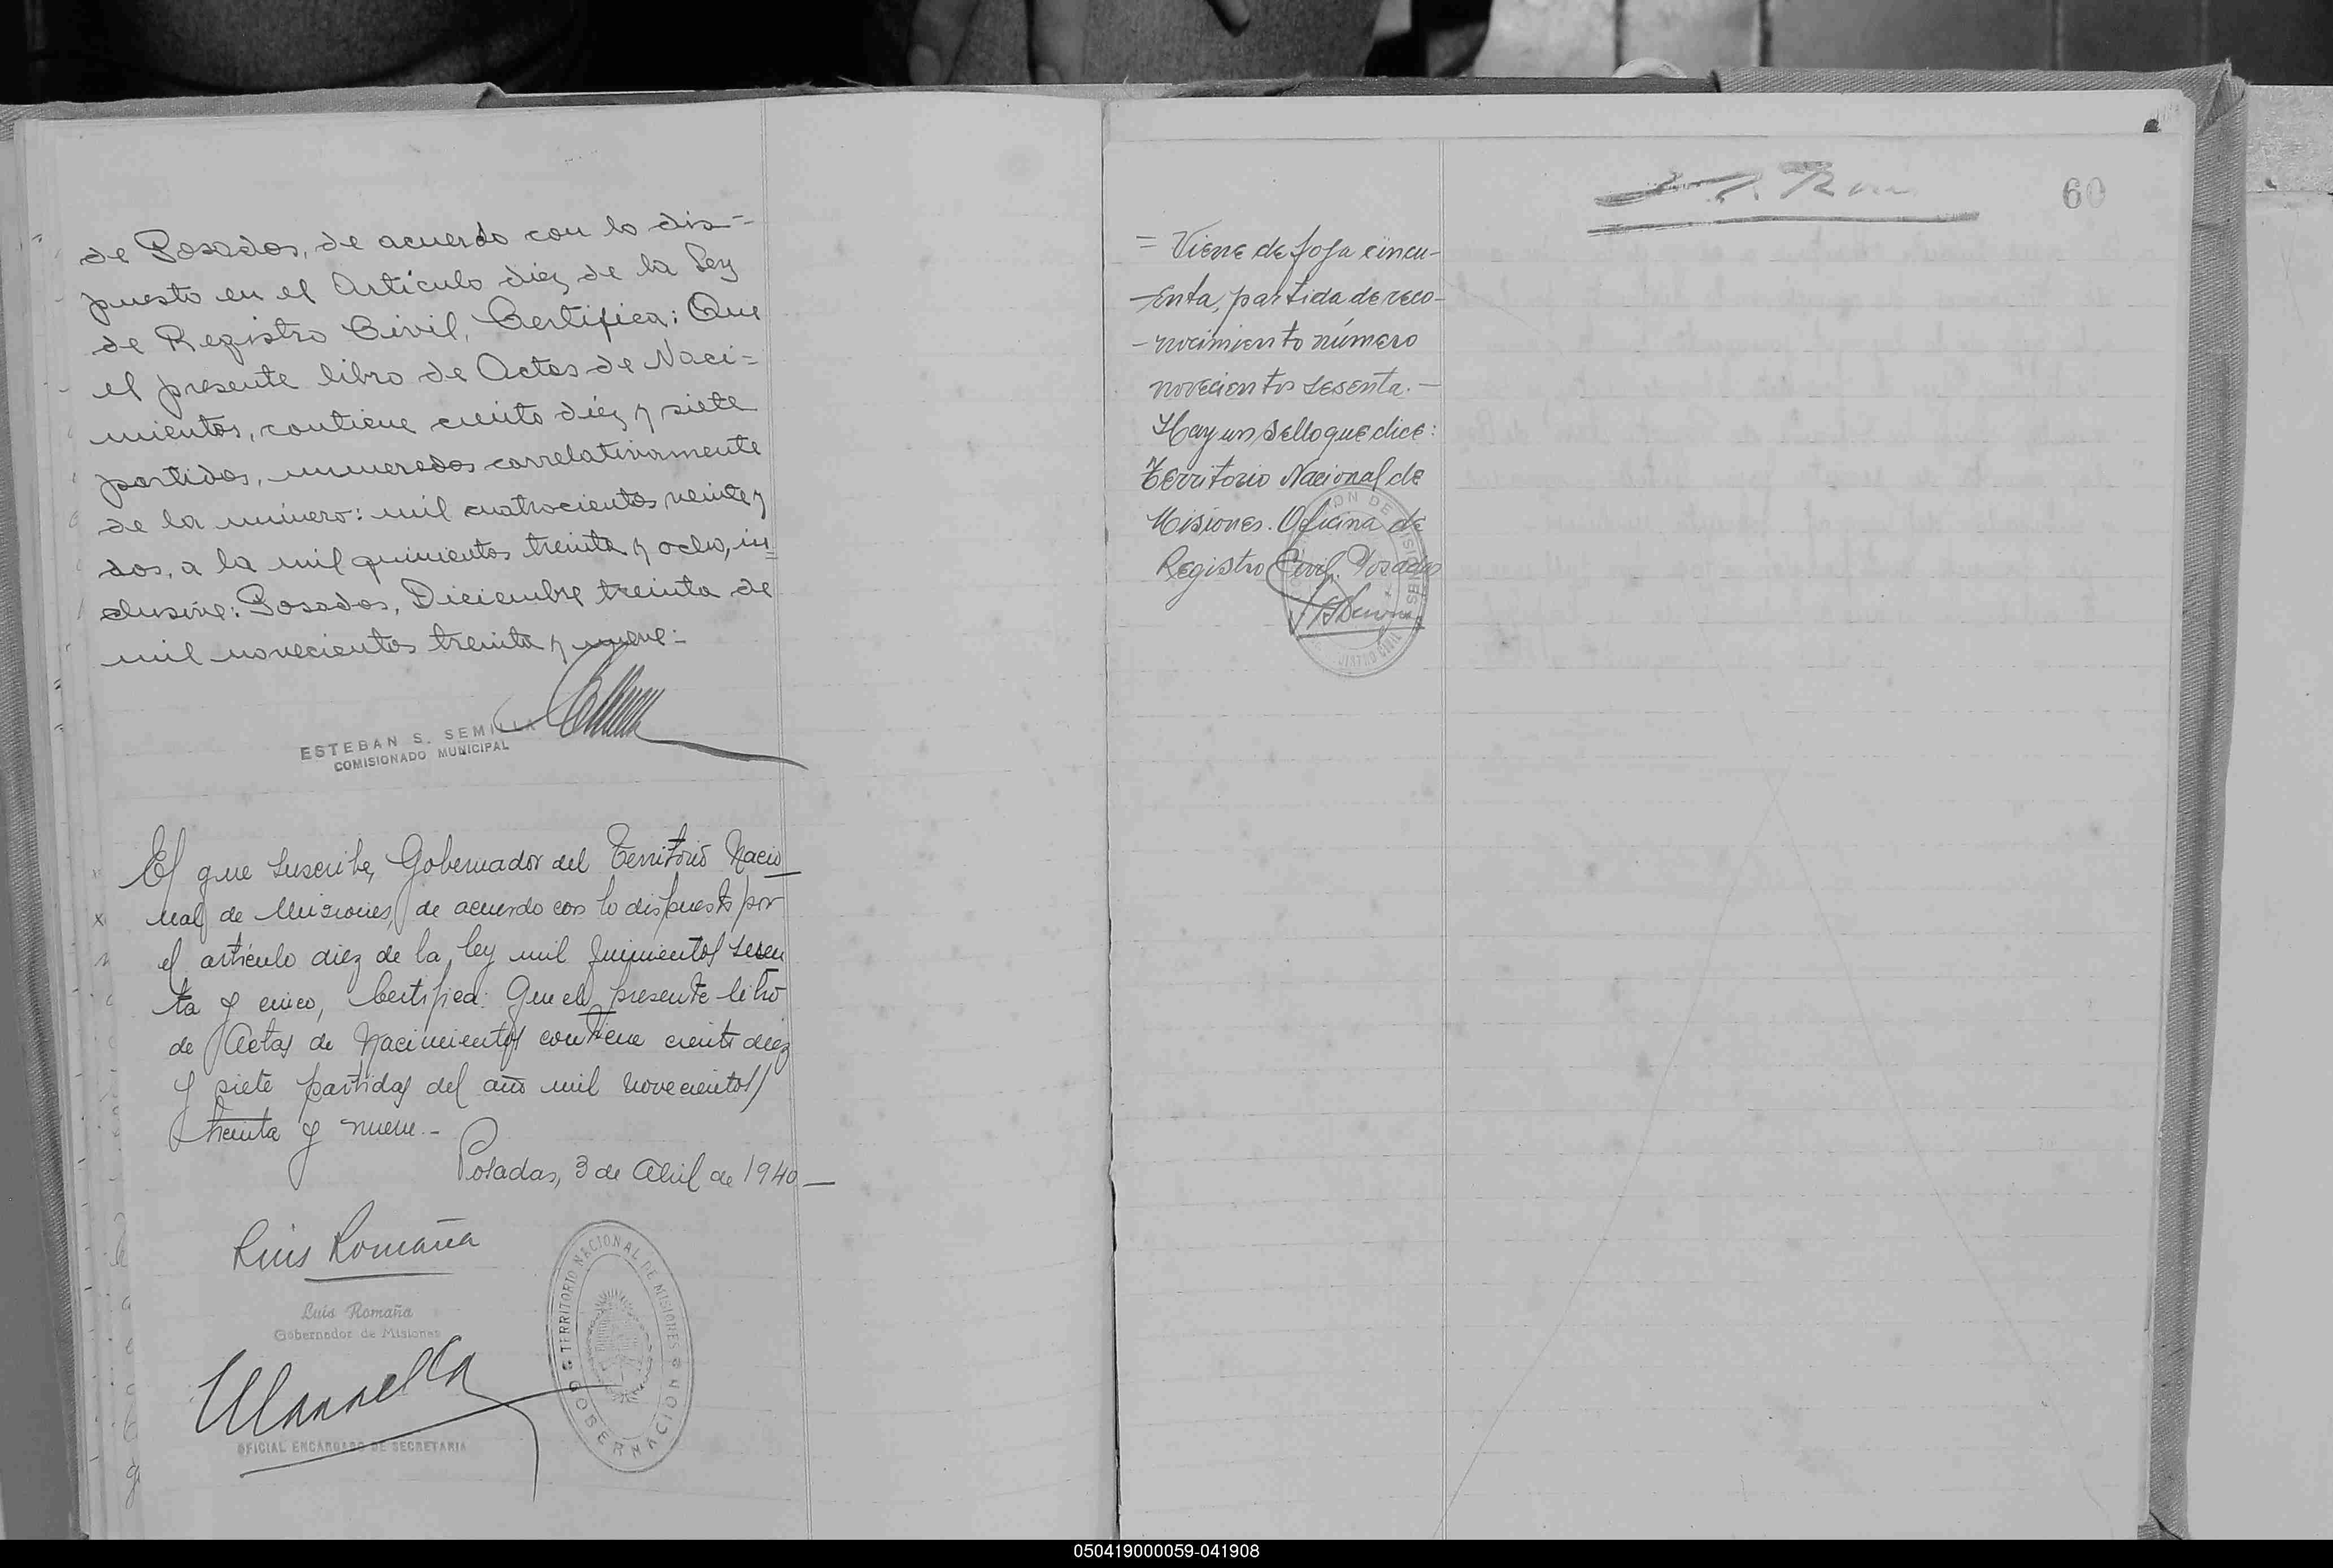 de Posadas, de acuerdo con lo dis=
puesto en el Artículo diez de la Ley
de Registro Civil, Certifica: Que
el presente libro de Actas de Naci=
mientos, contiene ciento diez y siete
partidas, numeradas correlativamente
de la número: mil cuatrocientos veinte y
dos, a la mil quinientos treinta y ocho, in=
clusive: Posadas, Diciembre treinta de
mil novecientos treinta y nueve:
ESTEBAN S. SEMILLA
COMISIONADO MUNICIPAL
El que suscribe, Gobernador del Territorio Nacio
nal de Misiones, de acuerdo con lo dispuesto por
el artículo diez de la ley mil quinientos sesen
ta y cinco, Certifica: Que el presente libro
de Actas de Nacimientos contiene ciento diez
y siete partidas del año mil novecientos
treinta y nueve.-
Posadas, 3 de Abril de 1940
Luis Romaña
Luis Romaña
Gobernador de Misiones
OFICIAL ENCARGADO DE SECRETARIA
TERRITORIO NACIONAL DE MISIONES
GOBERNACION
60
= Viene de foja cincu-
-enta, partida de reco-
-nocimiento número
novecientos sesenta.-
Hay un sello que dice:
Territorio Nacional de
Misiones. Oficina de
Registro Civil. Posadas
050419000059-041908